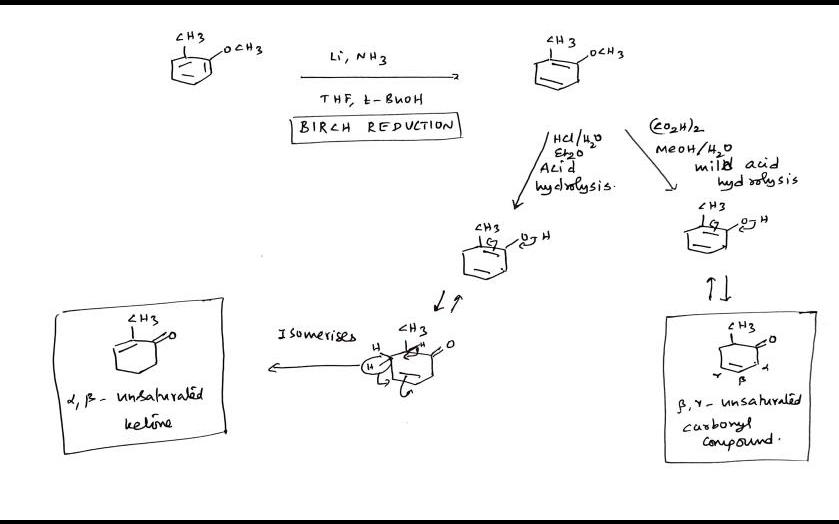 CH3
OCH3
Li, NH3
THF, t-BuOH
BIRCH REDUCTION
CH3
OCH3
HCl/H2O
Et2O
Acid
hydrolysis.
(CO2H)2
MeOH/H2O
mild acid
hydrolysis
CH3
O H
CH3
O H
CH3
O
H
H
H
Isomerises
CH3
O
α, β- unsaturated
ketone
CH3
O
γ
β
α
β, γ- unsaturated
carbonyl
compound.